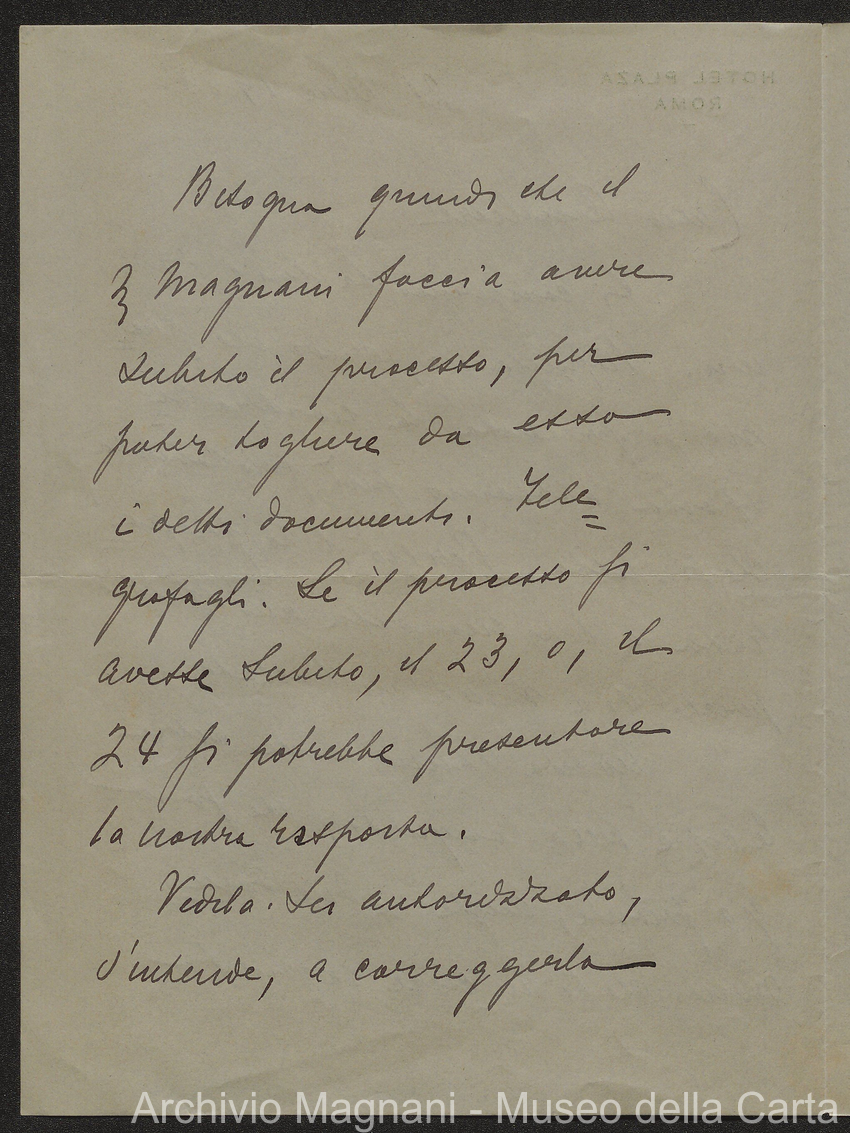 HOTEL PLAZA
ROMA
Bisogna quindi che il
Magnani faccia avere
subito il processo, per
poter togliere da esso
i detti documenti. Tele=
grafagli. Se il processo si
avesse subito, il 23, o, il
24 si potrebbe presentare
la nostra risposta.
Vedila. Sei autorizzato,
s'intende, a correggerla
Archivio Magnani - Museo della Carta